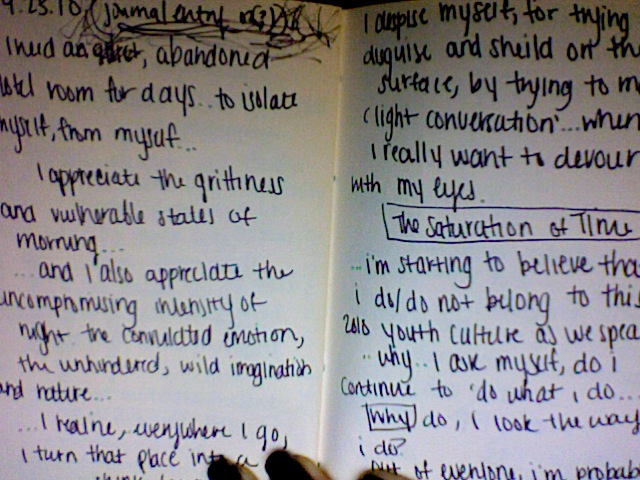 4.23.10 (journal entry
I need an quiet, abandoned
hotel room for days.. to isolate
myself, from myself...
I appreciate the grittiness
and vulnerable states of
morning...
...and I also appreciate the
uncompromising intensity of
night. the convoluted emotion,
the unhindered, wild imagination
and nature...
...I realize, everywhere I go,
I turn that place into a
I despise myself, for trying
disguise and sheild on the
surface, by trying to m
'light conversation'...when
I really want to devour
with my eyes.
The Saturation of Time
...i'm starting to believe tha
i do/do not belong to this
2010 youth culture as we spea
..why.. I ask myself, do i
continue to 'do what i do...
Why do, i look the way
i do?
out of everyone, i'm probab